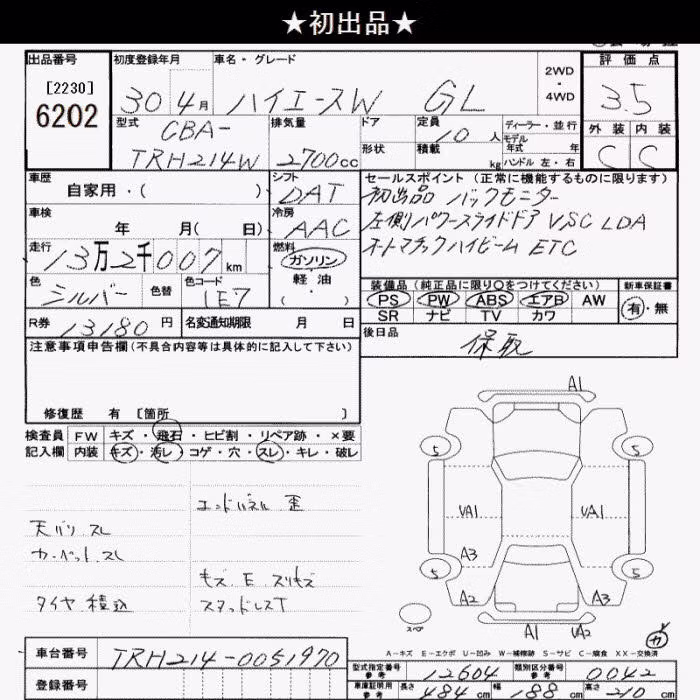 ★初出品★
出品番号
[2230]
6202
初度登録年月
30 4月
車名・グレード
ハイエースW GL
2WD・4WD
評価点
3.5
外装 内装
C C
型式
CBA-
TRH214W
排気量
2700cc
ドア
形状
定員
10人
積載
kg
ディーラー・並行
モデル年式 年
ハンドル 左・右
車歴
自家用・( )
シフト
DAT
セールスポイント(正常に機能するものに限ります)
初出品 バックモニター
左側パワースライドドア VSC LDA
オートマチックハイビーム ETC
車検
年 月( 日)
冷房
AAC
走行
13万2千007km
燃料
ガソリン
・
軽油
( ・ )
色
シルバー
色替
色コード
1E7
装備品(純正品に限り○をつけてください)
PS PW ABS エアB AW
SR ナビ TV カワ
新車保証書
有・無
R券 13180円
名変通知期限 月 日
後日品
保取
注意事項申告欄(不具合内容等は具体的に記入して下さい)
修復歴 有 〔箇所 〕
検査員記入欄
FW キズ・飛石・ヒビ割・リペア跡・×要
内装 キズ・汚レ・コゲ・穴・スレ・キレ・破レ
エンドパネル 歪
天バリ スレ
カーペット スレ
キズ E スリキズ
タイヤ 積込 スタッドレスT
A1
5 5
VA1 VA1
A3
5 5
A2 A3
スペア
A1 VA2
A-キズ E-エクボ U-凹み W-補修跡 S-サビ C-腐食 XX-交換済
車台番号 TRH214-0051970
登録番号
型式指定番号 参考 12604
類別区分番号 参考 0042
車庫証明用 参考 長さ 484cm 幅 188cm 高さ 210cm